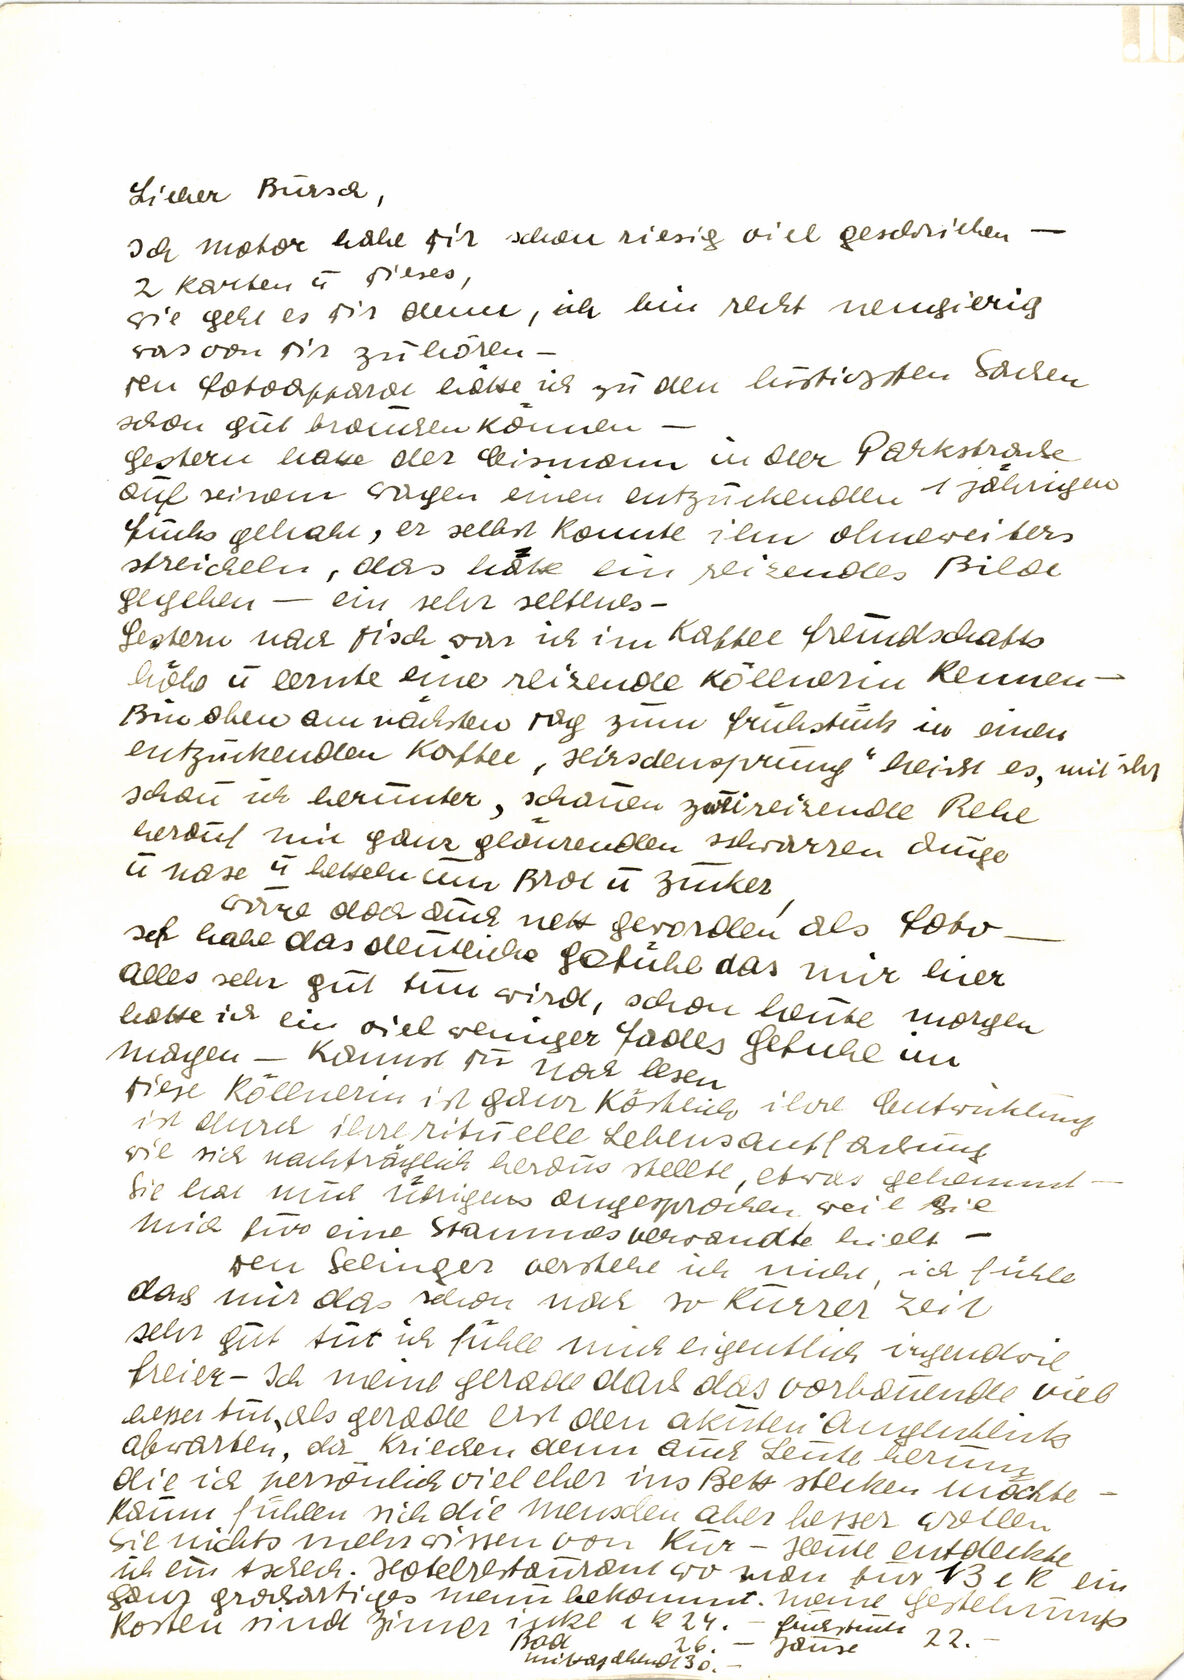 Lieber Bursch,
Ich Motor habe Dir schon riesig viel geschrieben —
2 Karten u Dieses,
wie geht es Dir denn, ich bin recht neugierig
was von Dir zu hören —
Den Fotoapparat hätte ich zu den lustigsten Sachen
schon gut brauchen können —
Gestern hatte der Eismann in der Parkstrasse
auf seinem Wagen einen entzückenden 1 jährigen
Fuchs gehabt, er selbst konnte ihn ohneweiters
streicheln, das hätte ein reizendes Bild
gegeben — ein sehr seltenes —
Gestern nach Tisch war ich im Kaffee Freundschafts
höhe u lernte eine reizende Köllnerin kennen —
Bin oben am nächsten Tag zum Frühstück in einen
entzückenden Kaffee „Hirschensprung" heisst es, mit ihr
schau ich herunter, schauen zwei reizende Rehe
herauf mit ganz glänzenden schwarzen Auge
u Nase u betteln um Brot u Zucker,
wäre doch auch nett geworden als Foto —
Ich habe das deutliche Gefühl das mir hier
alles sehr gut tun wird, schon heute morgen
hatte ich ein viel weniger fades Gefühl im
Magen — Kannst Du noch lesen
Diese Köllnerin ist ganz köstlich ihre Entwicklung
ist durch ihre rituelle Lebensauffassung
wie sich nachträglich heraus stellte, etwas gehemmt —
Sie hat mich übrigens angesprochen, weil Sie
mich für eine Stammesverwandte hielt —
Den Selinger verstehe ich nicht, ich fühle
das mir das schon nach so kurzer Zeit
sehr gut tut ich fühle mich eigentlich irgendwie
freier — Ich meine gerade das das vorbauende viel
besser tut, als gerade erst den akuten Augenblick
abwarten, da kriechen denn auch Leute herum
die ich persönlich viel eher ins Bett stecken möchte —
Kaum fühlen sich die Menschen aber besser wollen
Sie nichts mehr wissen von Kur — Heute entdeckte
ich ein tschech. Hotelrestaurant wo man für 13 č K ein
ganz grossartiges Menu bekommt. Meine Gestehungs
kosten sind Zimmer č K 24. — Frühstück
Bad 26. — Jause 22. —
Mittag Abend 30. —